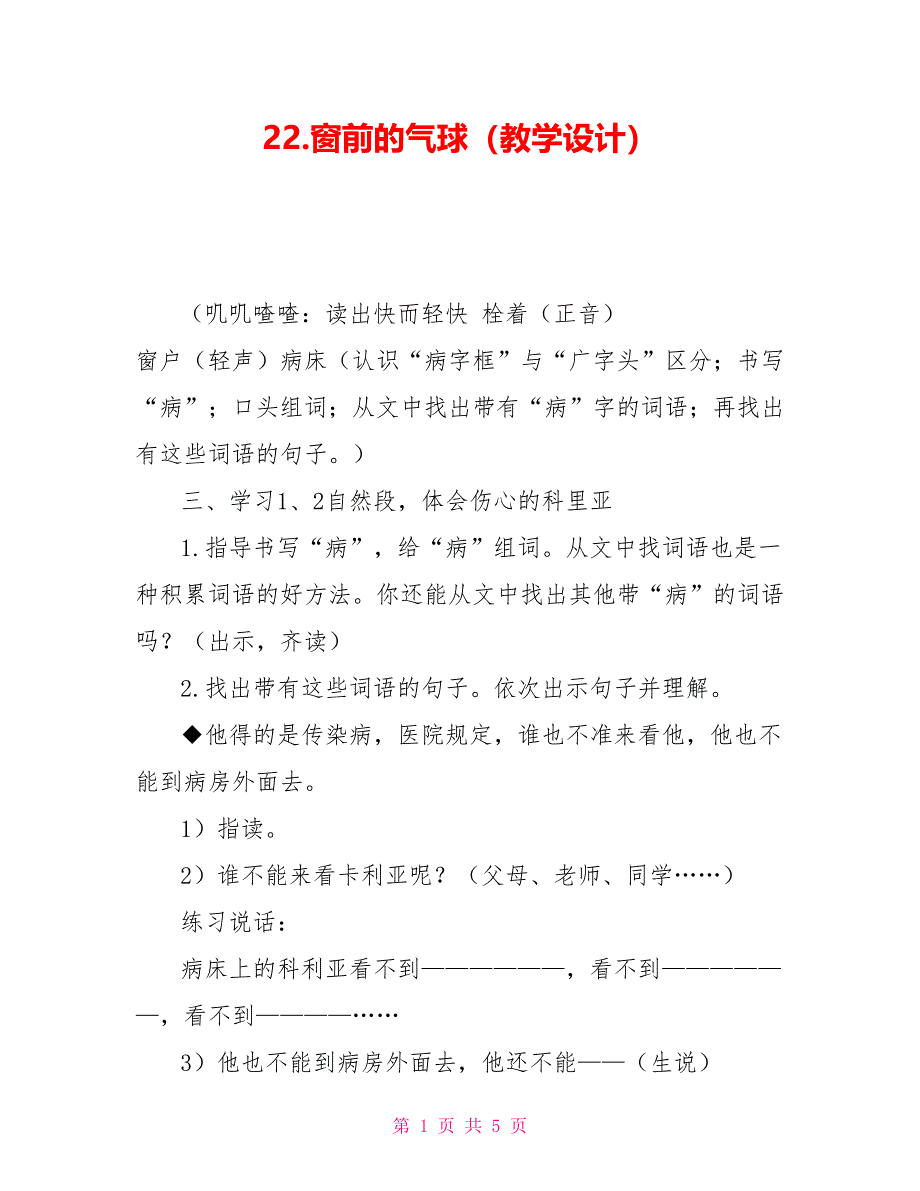 22.窗前的气球（教学设计）
（叽叽喳喳：读出快而轻快 栓着（正音）
窗户（轻声）病床（认识“病字框”与“广字头”区分；书写
“病”；口头组词；从文中找出带有“病”字的词语；再找出
有这些词语的句子。）
三、学习1、2自然段，体会伤心的科里亚
1.指导书写“病”，给“病”组词。从文中找词语也是一
种积累词语的好方法。你还能从文中找出其他带“病”的词语
吗？（出示，齐读）
2.找出带有这些词语的句子。依次出示句子并理解。
◆他得的是传染病，医院规定，谁也不准来看他，他也不
能到病房外面去。
1）指读。
2）谁不能来看卡利亚呢？（父母、老师、同学……）
练习说话：
病床上的科利亚看不到——————，看不到—————
—，看不到————……
3）他也不能到病房外面去，他还不能——（生说）
第 1 页 共 5 页